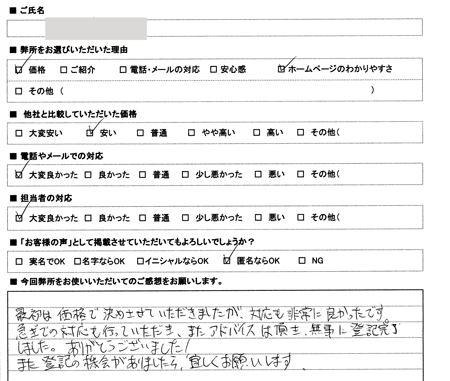 ■ ご氏名
■ 弊所をお選びいただいた理由
☑ 価格 □ ご紹介 □ 電話・メールの対応 □ 安心感 ☑ ホームページのわかりやすさ
□ その他 ( )
■ 他社と比較していただいた価格
□ 大変安い ☑ 安い □ 普通 □ やや高い □ 高い □ その他(
■ 電話やメールでの対応
☑ 大変良かった □ 良かった □ 普通 □ 少し悪かった □ 悪い □ その他(
■ 担当者の対応
☑ 大変良かった □ 良かった □ 普通 □ 少し悪かった □ 悪い □ その他(
■「お客様の声」として掲載させていただいてもよろしいでしょうか?
□ 実名でOK □ 名字ならOK □ イニシャルならOK ☑ 匿名ならOK □ NG
■ 今回弊所をお使いいただいてのご感想をお願いします。
最初は価格で決めさせていただきましたが、対応も非常に良かったです。
急ぎでの対応も行っていただき、またアドバイスは頂き、無事に登記完了
しました。ありがとうございました!
また登記の機会がありましたら、宜しくお願いします